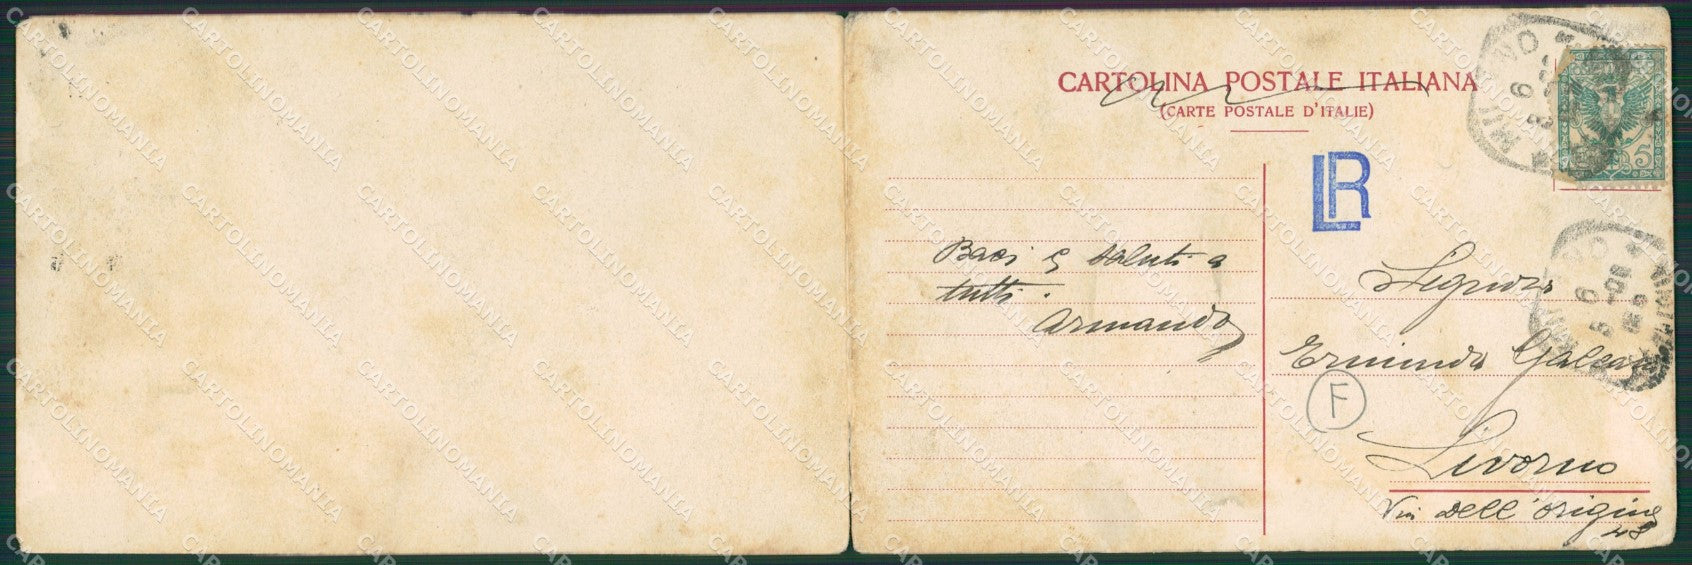 CARTOLINA POSTALE ITALIANA
(CARTE POSTALE D'ITALIE)
LR
5
MILANO
Baci e saluti a
tutti.
Armando
Signora
Erminda
F
Livorno
Via dell'origine
48
CARTOLINOMANIA